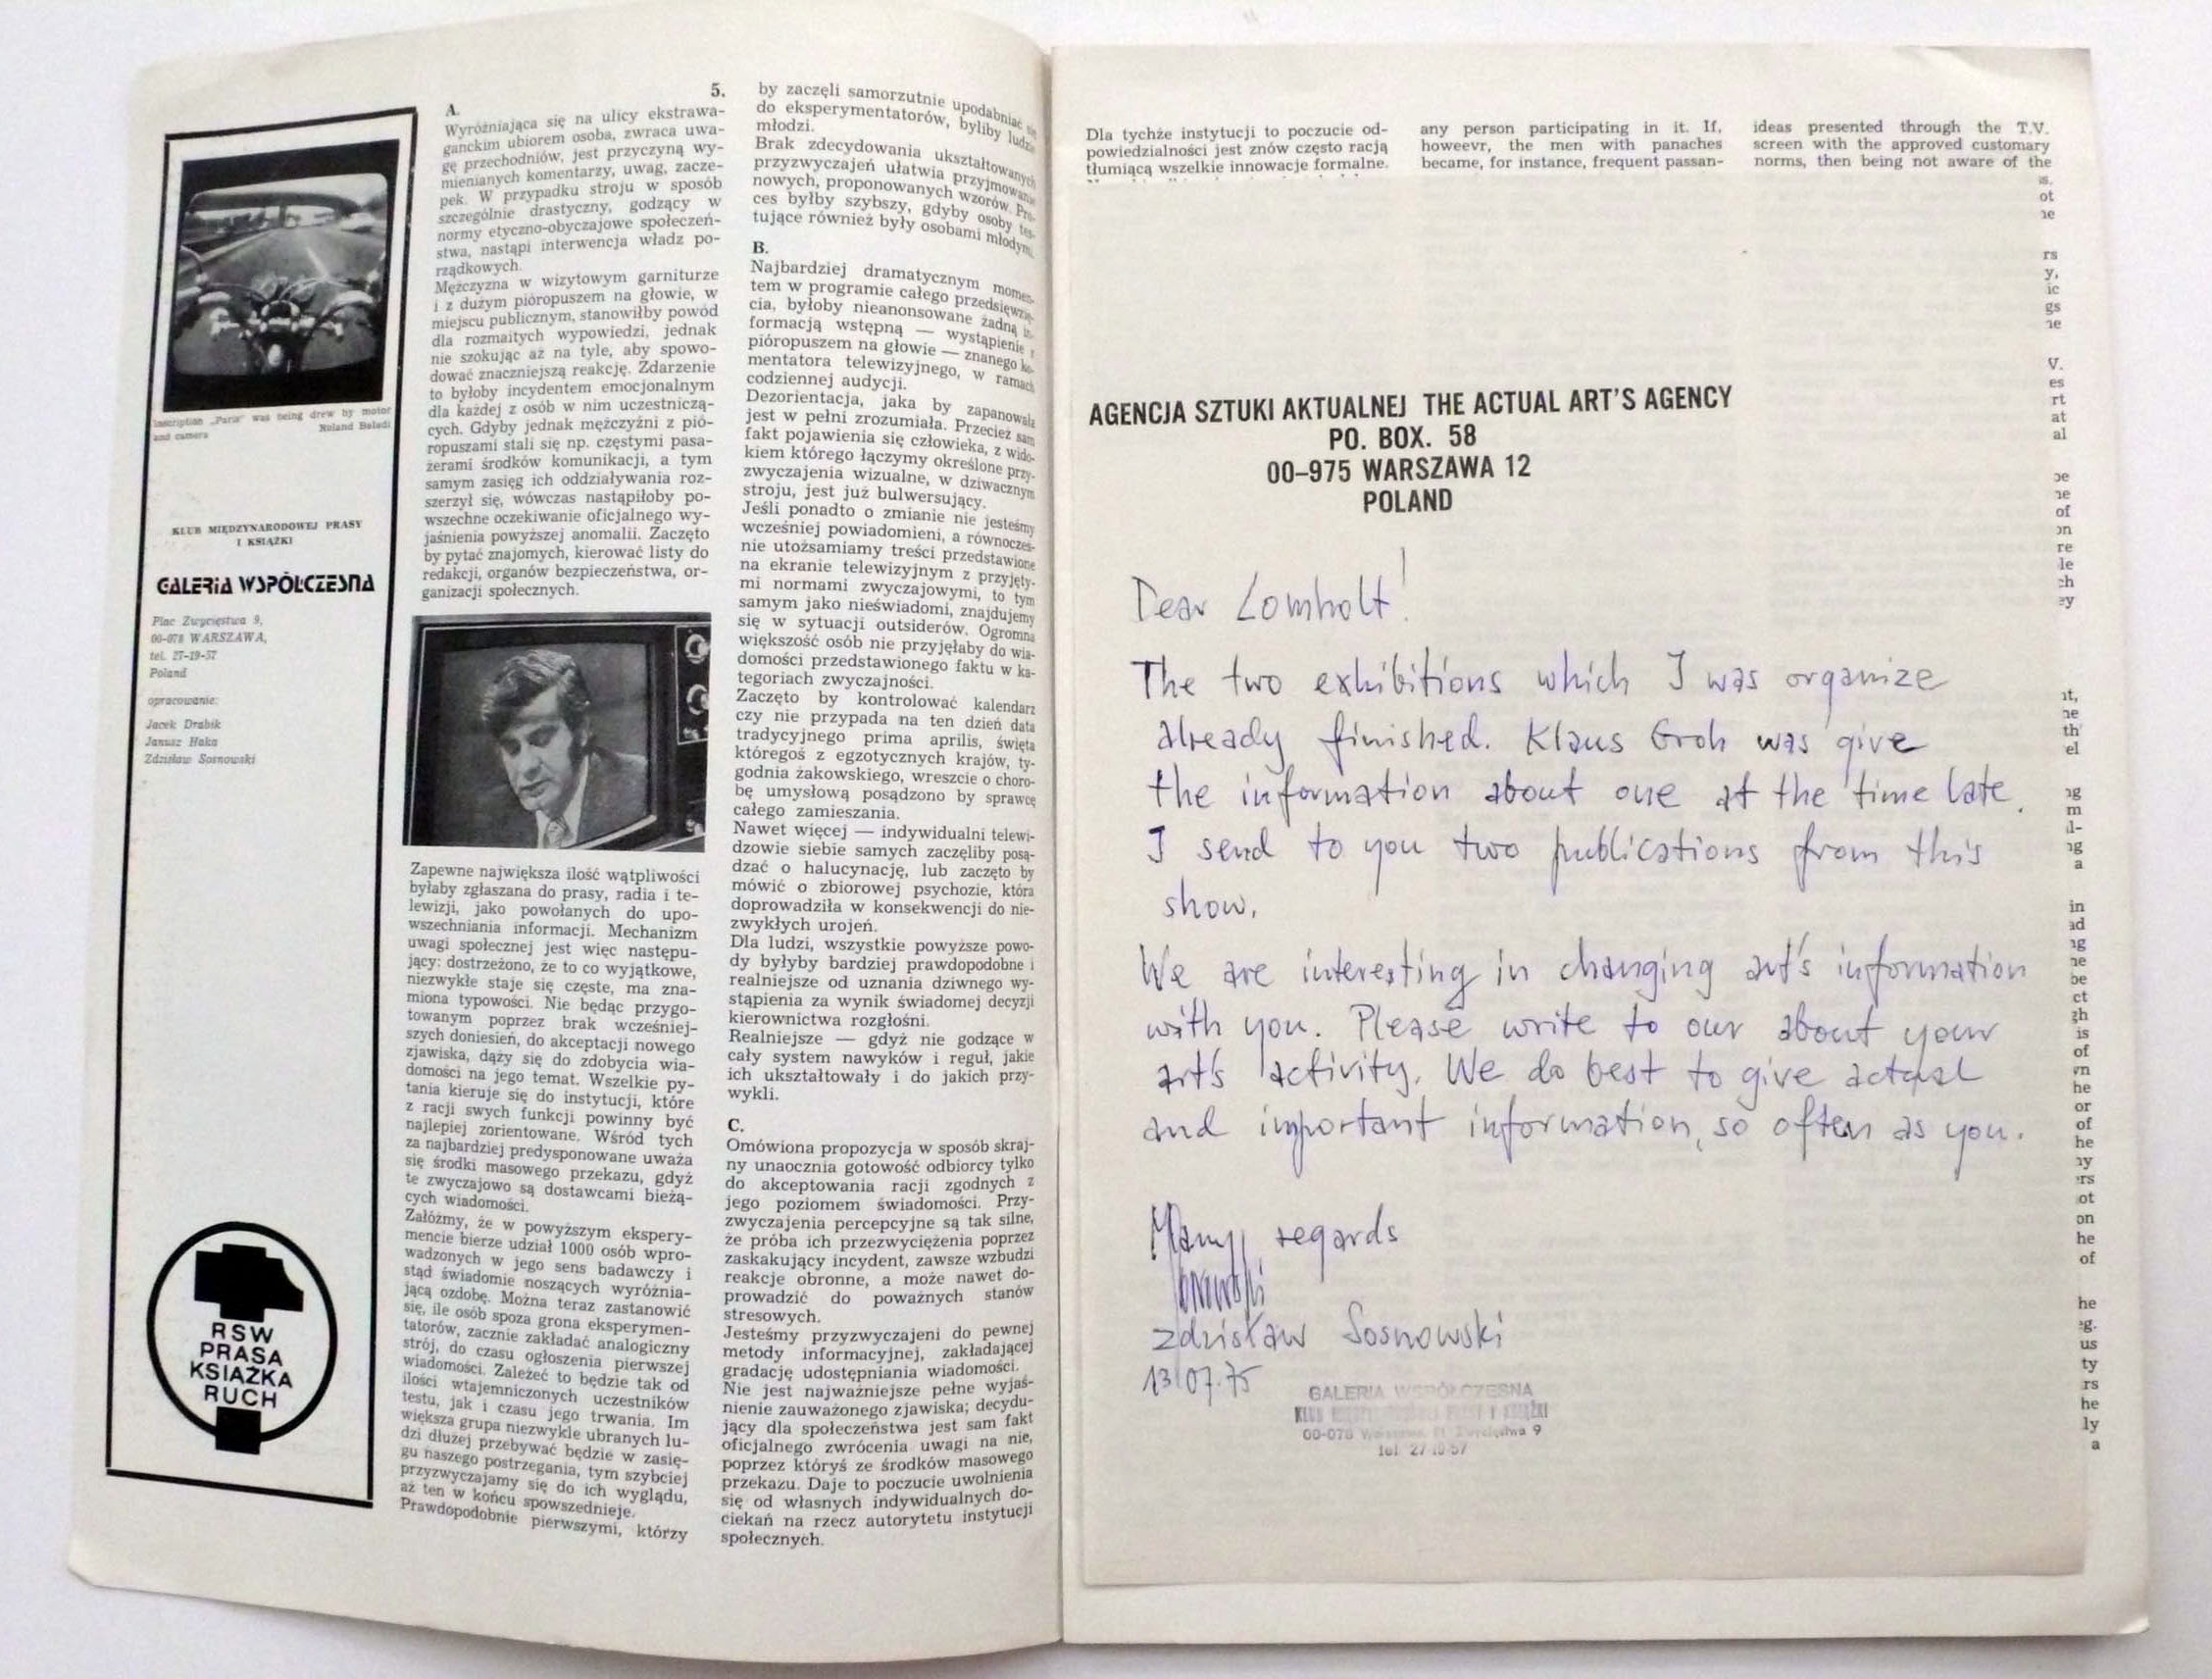 Inscription „Paris" was being drew by motor
and camera
Roland Baladi
KLUB MIĘDZYNARODOWEJ PRASY
I KSIĄŻKI
GALERIA WSPÓŁCZESNA
Plac Zwycięstwa 9,
00-078 WARSZAWA,
tel. 27-19-57
Poland
opracowanie:
Jacek Drabik
Janusz Haka
Zdzisław Sosnowski
RSW
PRASA
KSIĄŻKA
RUCH
5.
A.
Wyróżniająca się na ulicy ekstrawa-
ganckim ubiorem osoba, zwraca uwa-
gę przechodniów, jest przyczyną wy-
mienianych komentarzy, uwag, zacze-
pek. W przypadku stroju w sposób
szczególnie drastyczny, godzący w
normy etyczno-obyczajowe społeczeń-
stwa, nastąpi interwencja władz po-
rządkowych.
Mężczyzna w wizytowym garniturze
i z dużym pióropuszem na głowie, w
miejscu publicznym, stanowiłby powód
dla rozmaitych wypowiedzi, jednak
nie szokując aż na tyle, aby spowo-
dować znaczniejszą reakcję. Zdarzenie
to byłoby incydentem emocjonalnym
dla każdej z osób w nim uczestniczą-
cych. Gdyby jednak mężczyźni z pió-
ropuszami stali się np. częstymi pasa-
żerami środków komunikacji, a tym
samym zasięg ich oddziaływania roz-
szerzył się, wówczas nastąpiłoby po-
wszechne oczekiwanie oficjalnego wy-
jaśnienia powyższej anomalii. Zaczęto
by pytać znajomych, kierować listy do
redakcji, organów bezpieczeństwa, or-
ganizacji społecznych.
Zapewne największa ilość wątpliwości
byłaby zgłaszana do prasy, radia i te-
lewizji, jako powołanych do upo-
wszechniania informacji. Mechanizm
uwagi społecznej jest więc następu-
jący: dostrzeżono, że to co wyjątkowe,
niezwykłe staje się częste, ma zna-
miona typowości. Nie będąc przygo-
towanym poprzez brak wcześniej-
szych doniesień, do akceptacji nowego
zjawiska, dąży się do zdobycia wia-
domości na jego temat. Wszelkie py-
tania kieruje się do instytucji, które
z racji swych funkcji powinny być
najlepiej zorientowane. Wśród tych
za najbardziej predysponowane uważa
się środki masowego przekazu, gdyż
te zwyczajowo są dostawcami bieżą-
cych wiadomości.
Załóżmy, że w powyższym ekspery-
mencie bierze udział 1000 osób wpro-
wadzonych w jego sens badawczy i
stąd świadomie noszących wyróżnia-
jącą ozdobę. Można teraz zastanowić
się, ile osób spoza grona eksperymen-
tatorów, zacznie zakładać analogiczny
strój, do czasu ogłoszenia pierwszej
wiadomości. Zależeć to będzie tak od
ilości wtajemniczonych uczestników
testu, jak i czasu jego trwania. Im
większa grupa niezwykle ubranych lu-
dzi dłużej przebywać będzie w zasię-
gu naszego postrzegania, tym szybciej
przyzwyczajamy się do ich wyglądu,
aż ten w końcu spowszednieje.
Prawdopodobnie pierwszymi, którzy
by zaczęli samorzutnie upodabniać się
do eksperymentatorów, byliby ludzie
młodzi.
Brak zdecydowania ukształtowanych
przyzwyczajeń ułatwia przyjmowanie
nowych, proponowanych wzorów. Pro-
ces byłby szybszy, gdyby osoby tes-
tujące również były osobami młodymi.
B.
Najbardziej dramatycznym momen-
tem w programie całego przedsięwzię-
cia, byłoby nieanonsowane żadną in-
formacją wstępną — wystąpienie z
pióropuszem na głowie — znanego ko-
mentatora telewizyjnego, w ramach
codziennej audycji.
Dezorientacja, jaka by zapanowała
jest w pełni zrozumiała. Przecież sam
fakt pojawienia się człowieka, z wido-
kiem którego łączymy określone przy-
zwyczajenia wizualne, w dziwacznym
stroju, jest już bulwersujący.
Jeśli ponadto o zmianie nie jesteśmy
wcześniej powiadomieni, a równocześ-
nie utożsamiamy treści przedstawione
na ekranie telewizyjnym z przyjęty-
mi normami zwyczajowymi, to tym
samym jako nieświadomi, znajdujemy
się w sytuacji outsiderów. Ogromna
większość osób nie przyjęłaby do wia-
domości przedstawionego faktu w ka-
tegoriach zwyczajności.
Zaczęto by kontrolować kalendarz
czy nie przypada na ten dzień data
tradycyjnego prima aprilis, święta
któregoś z egzotycznych krajów, ty-
godnia żakowskiego, wreszcie o choro-
bę umysłową posądzono by sprawcę
całego zamieszania.
Nawet więcej — indywidualni telewi-
dzowie siebie samych zaczęliby posą-
dzać o halucynację, lub zaczęto by
mówić o zbiorowej psychozie, która
doprowadziła w konsekwencji do nie-
zwykłych urojeń.
Dla ludzi, wszystkie powyższe powo-
dy byłyby bardziej prawdopodobne i
realniejsze od uznania dziwnego wy-
stąpienia za wynik świadomej decyzji
kierownictwa rozgłośni.
Realniejsze — gdyż nie godzące w
cały system nawyków i reguł, jakie
ich ukształtowały i do jakich przy-
wykli.
C.
Omówiona propozycja w sposób skraj-
ny unaocznia gotowość odbiorcy tylko
do akceptowania racji zgodnych z
jego poziomem świadomości. Przy-
zwyczajenia percepcyjne są tak silne,
że próba ich przezwyciężenia poprzez
zaskakujący incydent, zawsze wzbudzi
reakcje obronne, a może nawet do-
prowadzić do poważnych stanów
stresowych.
Jesteśmy przyzwyczajeni do pewnej
metody informacyjnej, zakładającej
gradację udostępniania wiadomości.
Nie jest najważniejsze pełne wyjaś-
nienie zauważonego zjawiska; decydu-
jący dla społeczeństwa jest sam fakt
oficjalnego zwrócenia uwagi na nie,
poprzez któryś ze środków masowego
przekazu. Daje to poczucie uwolnienia
się od własnych indywidualnych do-
ciekań na rzecz autorytetu instytucji
społecznych.
Dla tychże instytucji to poczucie od-
powiedzialności jest znów często racją
tłumiącą wszelkie innowacje formalne.
any person participating in it. If,
howeevr, the men with panaches
became, for instance, frequent passan-
ideas presented through the T.V.
screen with the approved customary
norms, then being not aware of the
AGENCJA SZTUKI AKTUALNEJ THE ACTUAL ART'S AGENCY
PO. BOX. 58
00-975 WARSZAWA 12
POLAND
Dear Lomholt!
The two exhibitions which I was organize
already finished. Klaus Groh was give
the information about one at the time late.
I send to you two publications from this
show.
We are interesting in changing art's information
with you. Please write to our about your
art's activity. We do best to give actual
and important information, so often as you.
Many regards
Zdzisław Sosnowski
13.07.75
GALERIA WSPÓŁCZESNA
KLUB MIĘDZYNARODOWEJ PRASY I KSIĄŻKI
00-078 Warszawa, Pl. Zwycięstwa 9
tel. 27-19-57